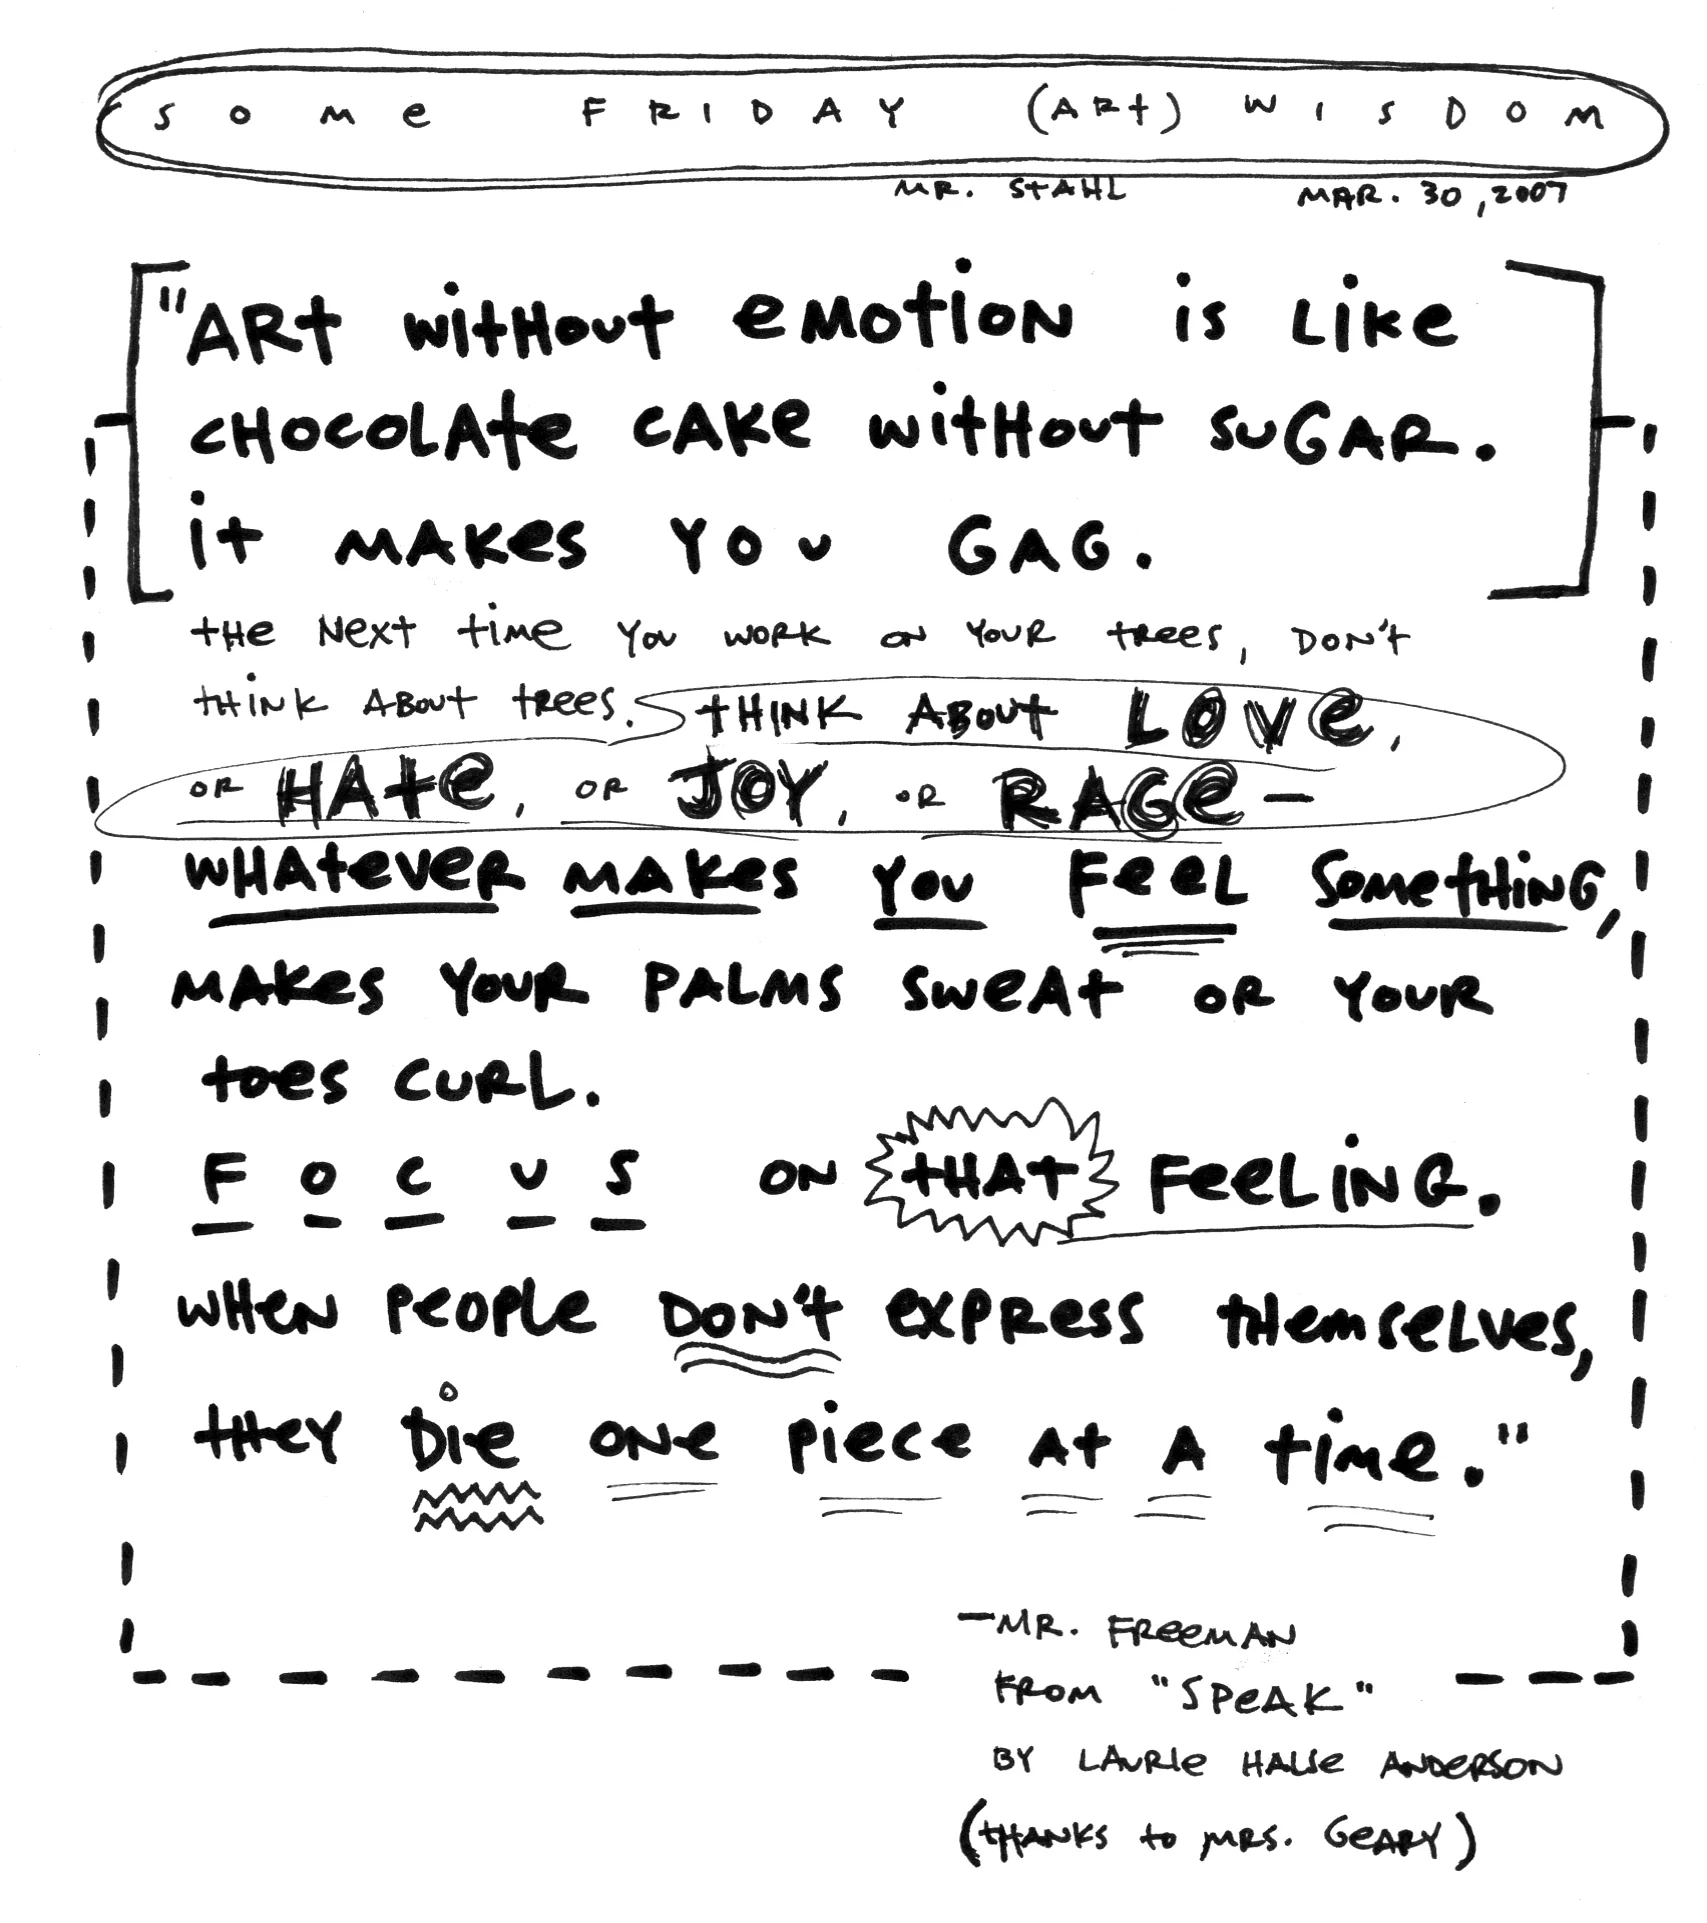 SOME FRIDAY (ART) WISDOM
MR. STAHL MAR. 30, 2007
"ART WITHOUT EMOTION IS LIKE
CHOCOLATE CAKE WITHOUT SUGAR.
IT MAKES YOU GAG.
THE NEXT TIME YOU WORK ON YOUR TREES, DON'T
THINK ABOUT TREES. THINK ABOUT LOVE,
OR HATE, OR JOY, OR RAGE—
WHATEVER MAKES YOU FEEL SOMETHING,
MAKES YOUR PALMS SWEAT OR YOUR
TOES CURL.
FOCUS ON THAT FEELING.
WHEN PEOPLE DON'T EXPRESS THEMSELVES,
THEY DIE ONE PIECE AT A TIME."
—MR. FREEMAN
FROM "SPEAK"
BY LAURIE HALSE ANDERSON
(THANKS TO MRS. GEARY)